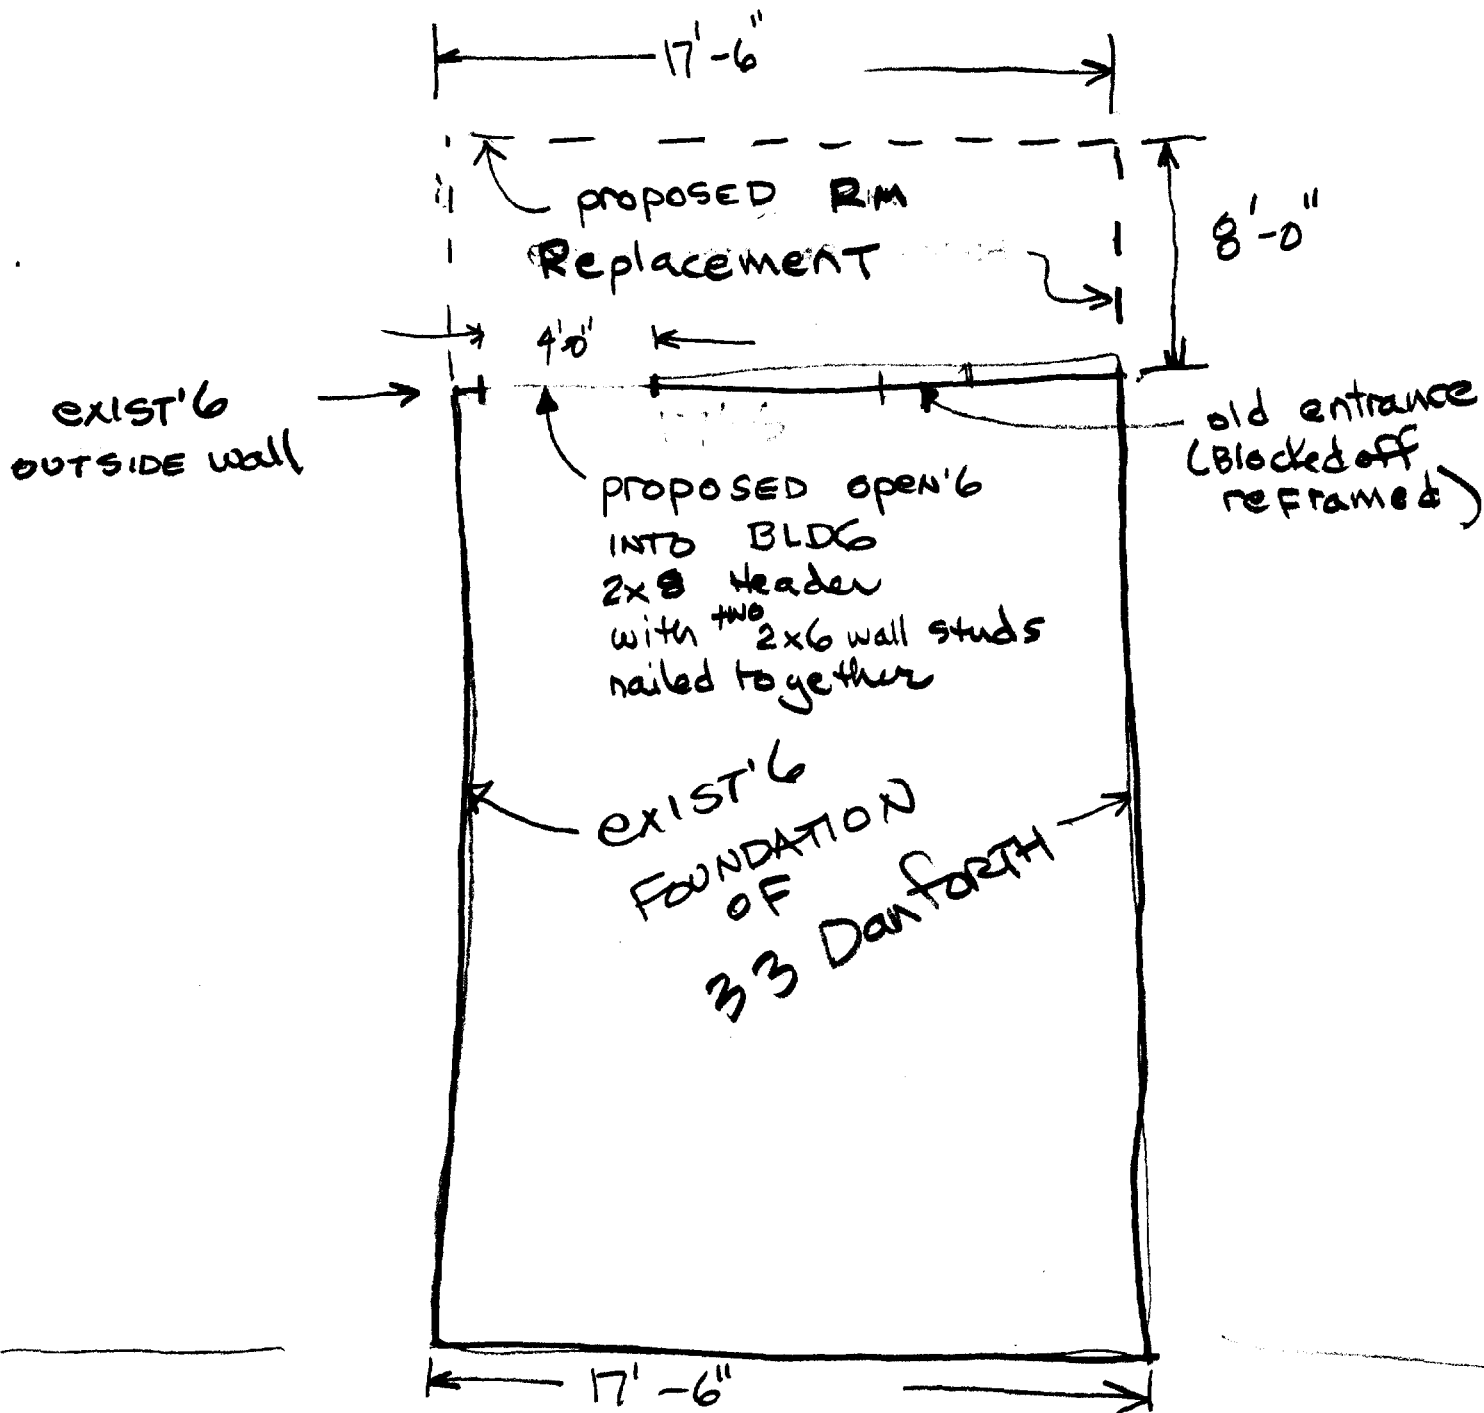 17'-6"
proposed Rim
Replacement
8'-0"
4'0"
exist'G
outside wall
old entrance
(Blocked off
reframed)
proposed open'G
into BLDG
2x8 Header
with two 2x6 wall studs
nailed together
exist'G
Foundation
of
33 Danforth
17'-6"